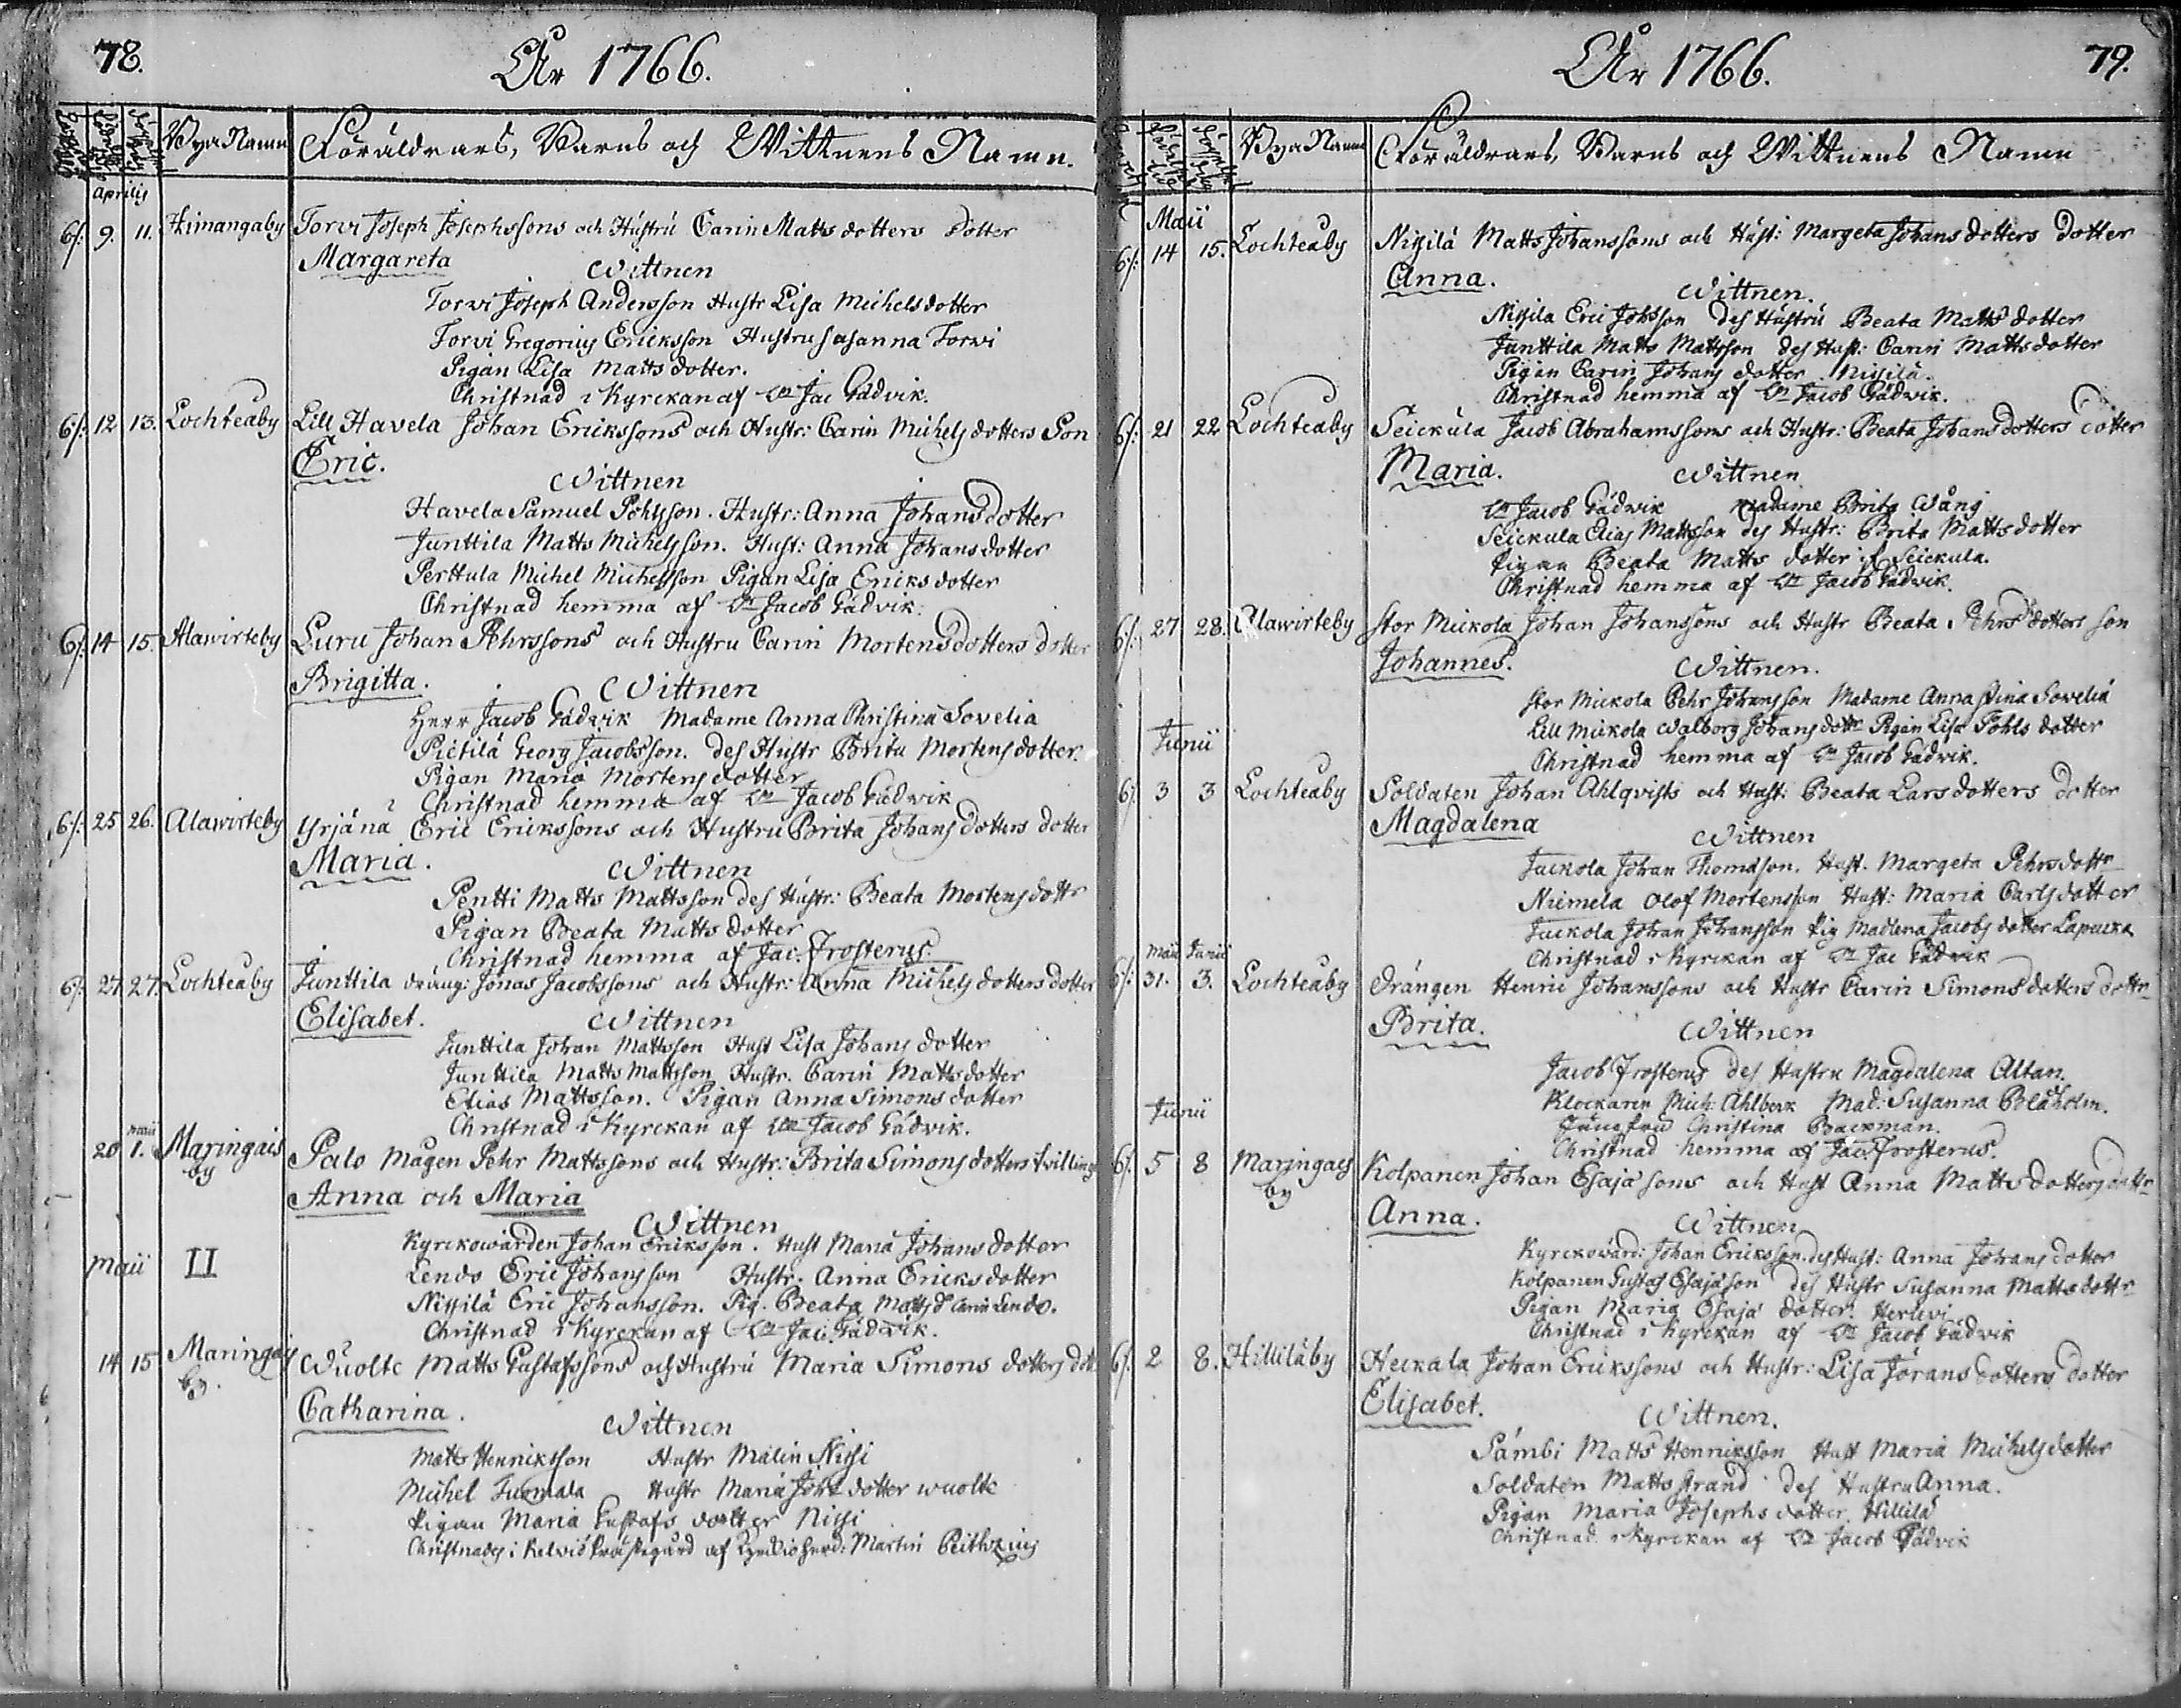 78.
År 1766.
Bya Namn
Föräldrars, Barns och Wittnens Namn.
Aprilis
6/: 9. 11. Himangaby Torvi Joseph Josephssons och Hustru Carin Matts dotters dotter
Margareta
Wittnen
Torvi Joseph Andersson Hustr Lisa Michelsdotter
Torvi Gregorius Ericksson Hustru Susanna Torvi
Pigan Lisa Matts dotter.
Christnad i Kyrckan af Jac Gadvik.
6/: 12 13. Lochteaby Lill Havela Johan Erickssons och Hustr: Carin Michels dotters Son
Eric.
Wittnen
Havela Samuel Pohlsson. Hustr: Anna Johansdotter
Junttila Matts Michelsson. Hust: Anna Johansdotter
Perttula Michel Michelsson Pigan Lisa Ericksdotter
Christnad hemma af Jacob Gadvik.
6/: 14 15. Alawirteby Luru Johan Pehrssons och Hustru Carin Mortensdotters dotter
Brigitta.
Wittnen
Herr Jacob Gadvik Madame Anna Christina Sovelia
Pietilä Georg Jacobsson. des Hustr Brita Mortens dotter.
Pigan Maria Mortens dotter
Christnad hemma af Jacob Gadvik
6/: 25 26. Alawirteby Yrjänä Eric Erickssons och Hustru Brita Johans dotters dotter
Maria.
Wittnen
Pentti Matts Mattsson des Hustr: Beata Mortens dottr
Pigan Beata Matts dotter
Christnad hemma af Jac. Frosterus.
6/: 27 27. Lochteaby Junttila dräng: Jonas Jacobssons och Hustr: Anna Michels dotters dotter
Elisabet.
Wittnen
Junttila Johan Mattsson Hust Lisa Johans dotter
Junttila Matts Mattsson Hustr. Carin Mattsdotter
Elias Mattsson. Pigan Anna Simons dotter
Christnad i Kyrckan af Jacob Gadvik.
Maii
20 1. Maringais Palo Mågen Pehr Mattssons och Hustr: Brita Simons dotters twilling
by
Anna och Maria
Wittnen
Kyrckowärden Johan Ericksson. Hust Maria Johans dotter
Maii II Lendo Eric Johansson Hustr. Anna Ericks dotter
Nissilä Eric Johansson. Pig. Beata Matts Lendo.
Christnad i Kyrckan af Jac. Gadvik.
14 15 Maringais Wuolte Matts Gustafssons och Hustru Maria Simons dotters dot
by.
Catharina.
Wittnen
Matts Henriksson Hustr Malin Nissi
Michel Tuomala Hustr Maria Joh dotter Wuolte
Pigan Maria Gustafs dotter Nissi
Christnades i Kelviå Prästegård af Martin Peitzius
År 1766.
79.
Bya Namn
Föräldrars, Barns och Wittnens Namn
Maii
6/: 14 15. Lochteaby Nissilä Matts Johanssons och Hust: Margeta Johansdotters dotter
Anna.
Wittnen.
Nissila Eric Johsson des Hustru Beata Matts dotter
Junttila Matts Mattsson des Hust: Carin Matts dotter
Pigan Carin Johans dotter Nissilä.
Christnad hemma af Jacob Gadvik.
6/: 21 22 Lochteaby Seickula Jacob Abrahamssons och Hustr: Beata Johans dotters dotter
Maria.
Wittnen
Jacob Gadvik Madame Brita Wång
Seickula Elias Mattsson des Hustr: Brita Matts dotter
Pigan Beata Matts dotter Seickula.
Christnad hemma af Jacob Gadvik.
6/: 27 28. Alawirteby Stor Mickola Johan Johanssons och Hustr Beata Pehrs dotters son
Johannes.
Wittnen.
Stor Mickola Pehr Johansson Madame Anna Stina Sovelia
Lill Mickola Walborg Johans dottr Pigan Lisa Pohls dotter
Christnad hemma af Jacob Gadvik.
Junii
6/: 3 3 Lochteaby Soldaten Johan Ahlqvists och Hust. Beata Lars dotters dotter
Magdalena
Wittnen
Jackola Johan Thomasson. Hust. Margeta Pehrs dottr
Niemela Olof Mortensson Hust: Maria Carls dotter
Jackola Johan Johansson Pig Madlena Jacobs dotter
Christnad i Kyrckan af Jac Gadvik
Maii Junii
6/: 31. 3. Lochteaby Drängen Henric Johanssons och Hustr Carin Simons dotters dottr
Brita.
Wittnen
Jacob Frosterus des Hustru Magdalena Altan.
Klockaren Mich: Ahlbeck Mad: Susanna Blåholm.
Jungfru Christina Backman.
Christnad hemma af Jac. Frosterus.
Junii
6/: 5 8 Maringais Kolpanen Johan Esajæ sons och Hust Anna Matts dotters dottr
by
Anna.
Wittnen
Kyrckowärd: Johan Ericksson des Hust: Anna Johans dotter
Kolpanen Gustaf Esajæson des Hustr Susanna Matts dottr
Pigan Maria Esajæ dotter. Herlevi
Christnad i Kyrckan af Jacob Gadvik
6/: 2 8. Hilliläby Heickala Johan Erickssons och Hustr: Lisa Jörans dotters dotter
Elisabet.
Wittnen.
Sämbi Matts Henriksson Hust Maria Michels dotter
Soldaten Matts Strand des Hustru Anna.
Pigan Maria Josephs dotter. Hillilä
Christnad i Kyrckan af Jacob Gadvik